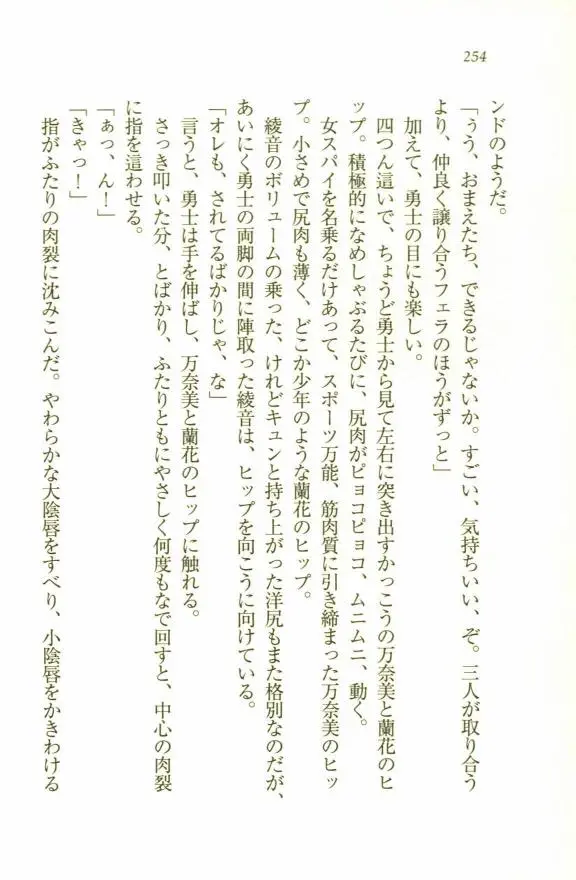 254
ンドのようだ。
「うう、おまえたち、できるじゃないか。すごい、気持ちいい、ぞ。三人が取り合う
より、仲良く譲り合うフェラのほうがずっと」
加えて、勇士の目にも楽しい。
四つん這いで、ちょうど勇士から見て左右に突き出すかっこうの万奈美と蘭花のヒ
ップ。積極的になめしゃぶるたびに、尻肉がピョコピョコ、ムニムニ、動く。
女スパイを名乗るだけあって、スポーツ万能、筋肉質に引き締まった万奈美のヒッ
プ。小さめで尻肉も薄く、どこか少年のような蘭花のヒップ。
綾音のボリュームの乗った、けれどキュンと持ち上がった洋尻もまた格別なのだが、
あいにく勇士の両脚の間に陣取った綾音は、ヒップを向こうに向けている。
「オレも、されてるばかりじゃ、な」
言うと、勇士は手を伸ばし、万奈美と蘭花のヒップに触れる。
さっき叩いた分、とばかり、ふたりともにやさしく何度もなで回すと、中心の肉裂
に指を這わせる。
「ぁっ、ん！」
「きゃっ！」
指がふたりの肉裂に沈みこんだ。やわらかな大陰唇をすべり、小陰唇をかきわける